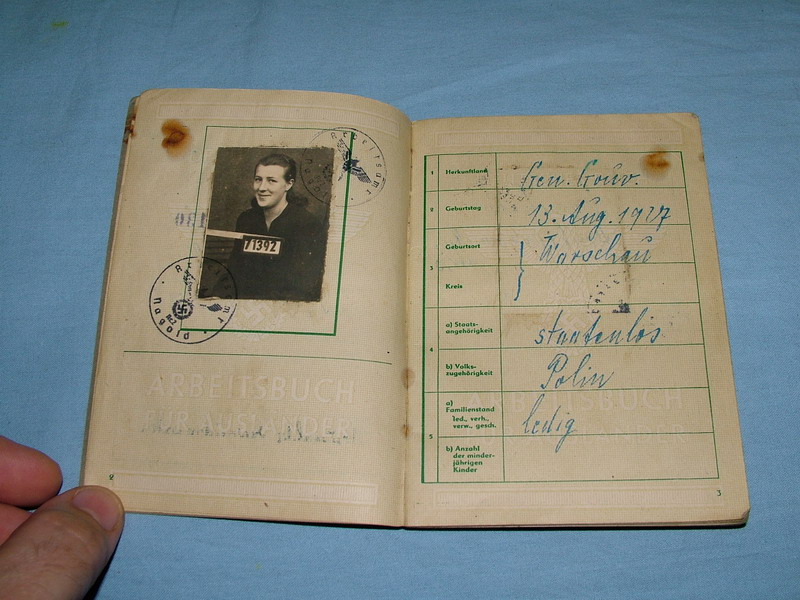 Arbeitsamt
180
71392
Arbeitsamt
Glogau
ARBEITSBUCH
FÜR AUSLÄNDER
2
1 Herkunftland Gen. Gouv.
2 Geburtstag 13. Aug. 1927
3 Geburtsort Warschau
Kreis
4 a) Staats-
angehörigkeit staatenlos
b) Volks-
zugehörigkeit Polin
5 a)
Familienstand
led., verh.,
verw., gesch. ledig
b) Anzahl
der minder-
jährigen
Kinder
ARBEITSBUCH
3